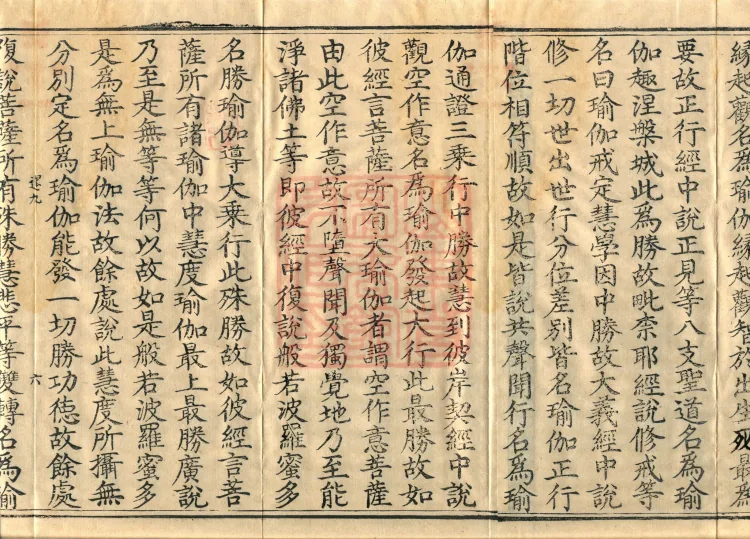 緣起觀名為瑜伽緣起觀智於出生死最為
要故正行經中說正見等八支聖道名為瑜
伽趣涅槃城此為勝故毗柰耶經說修戒等
名曰瑜伽戒定慧學因中勝故大義經中說
修一切世出世行分位差別皆名瑜伽正行
階位相符順故如是皆說共聲聞行名為瑜
伽通證三乘行中勝故慧到彼岸契經中說
觀空作意名為瑜伽發起大行此最勝故如
彼經言菩薩所有大瑜伽者謂空作意菩薩
由此空作意故不墮聲聞及獨覺地乃至能
淨諸佛土等即彼經中復說般若波羅蜜多
名勝瑜伽導大乘行此殊勝故如彼經言菩
薩所有諸瑜伽中慧度瑜伽最上最勝廣說
乃至是無等等何以故如是般若波羅蜜多
是為無上瑜伽法故餘處說此慧度所攝無
分別定名為瑜伽能發一切勝功德故餘處
六
復說菩薩所有殊勝慧悲平等雙轉名為瑜